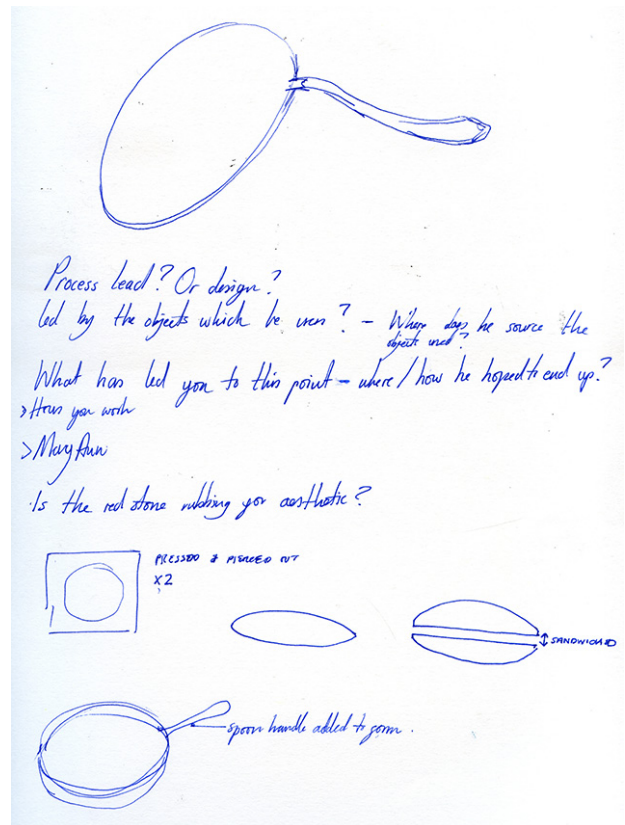 Process lead? Or design?
led by the objects which he uses? - Where does he source the
objects used?
What has led you to this point - where / how he hoped to end up?
> How you work
> Mary Ann
Is the red stone rubbing your aesthetic?
PRESSED & PIERCED OUT
X2
SANDWICHED
spoon handle added to form.